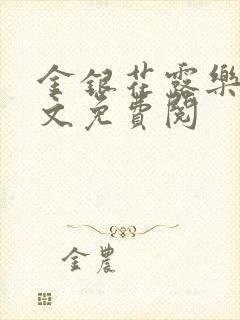 金銀花露樂
文免費閱
金農